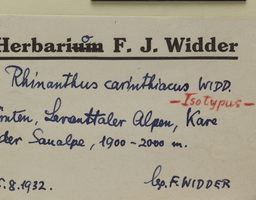 Herbarium F. J. Widder
Rhinanthus carinthiacus WIDD.
- Isotypus -
Lavanttaler Alpen, Kare
der Saualpe, 1900-2000 m.
.8.1932. lg. F. WIDDER